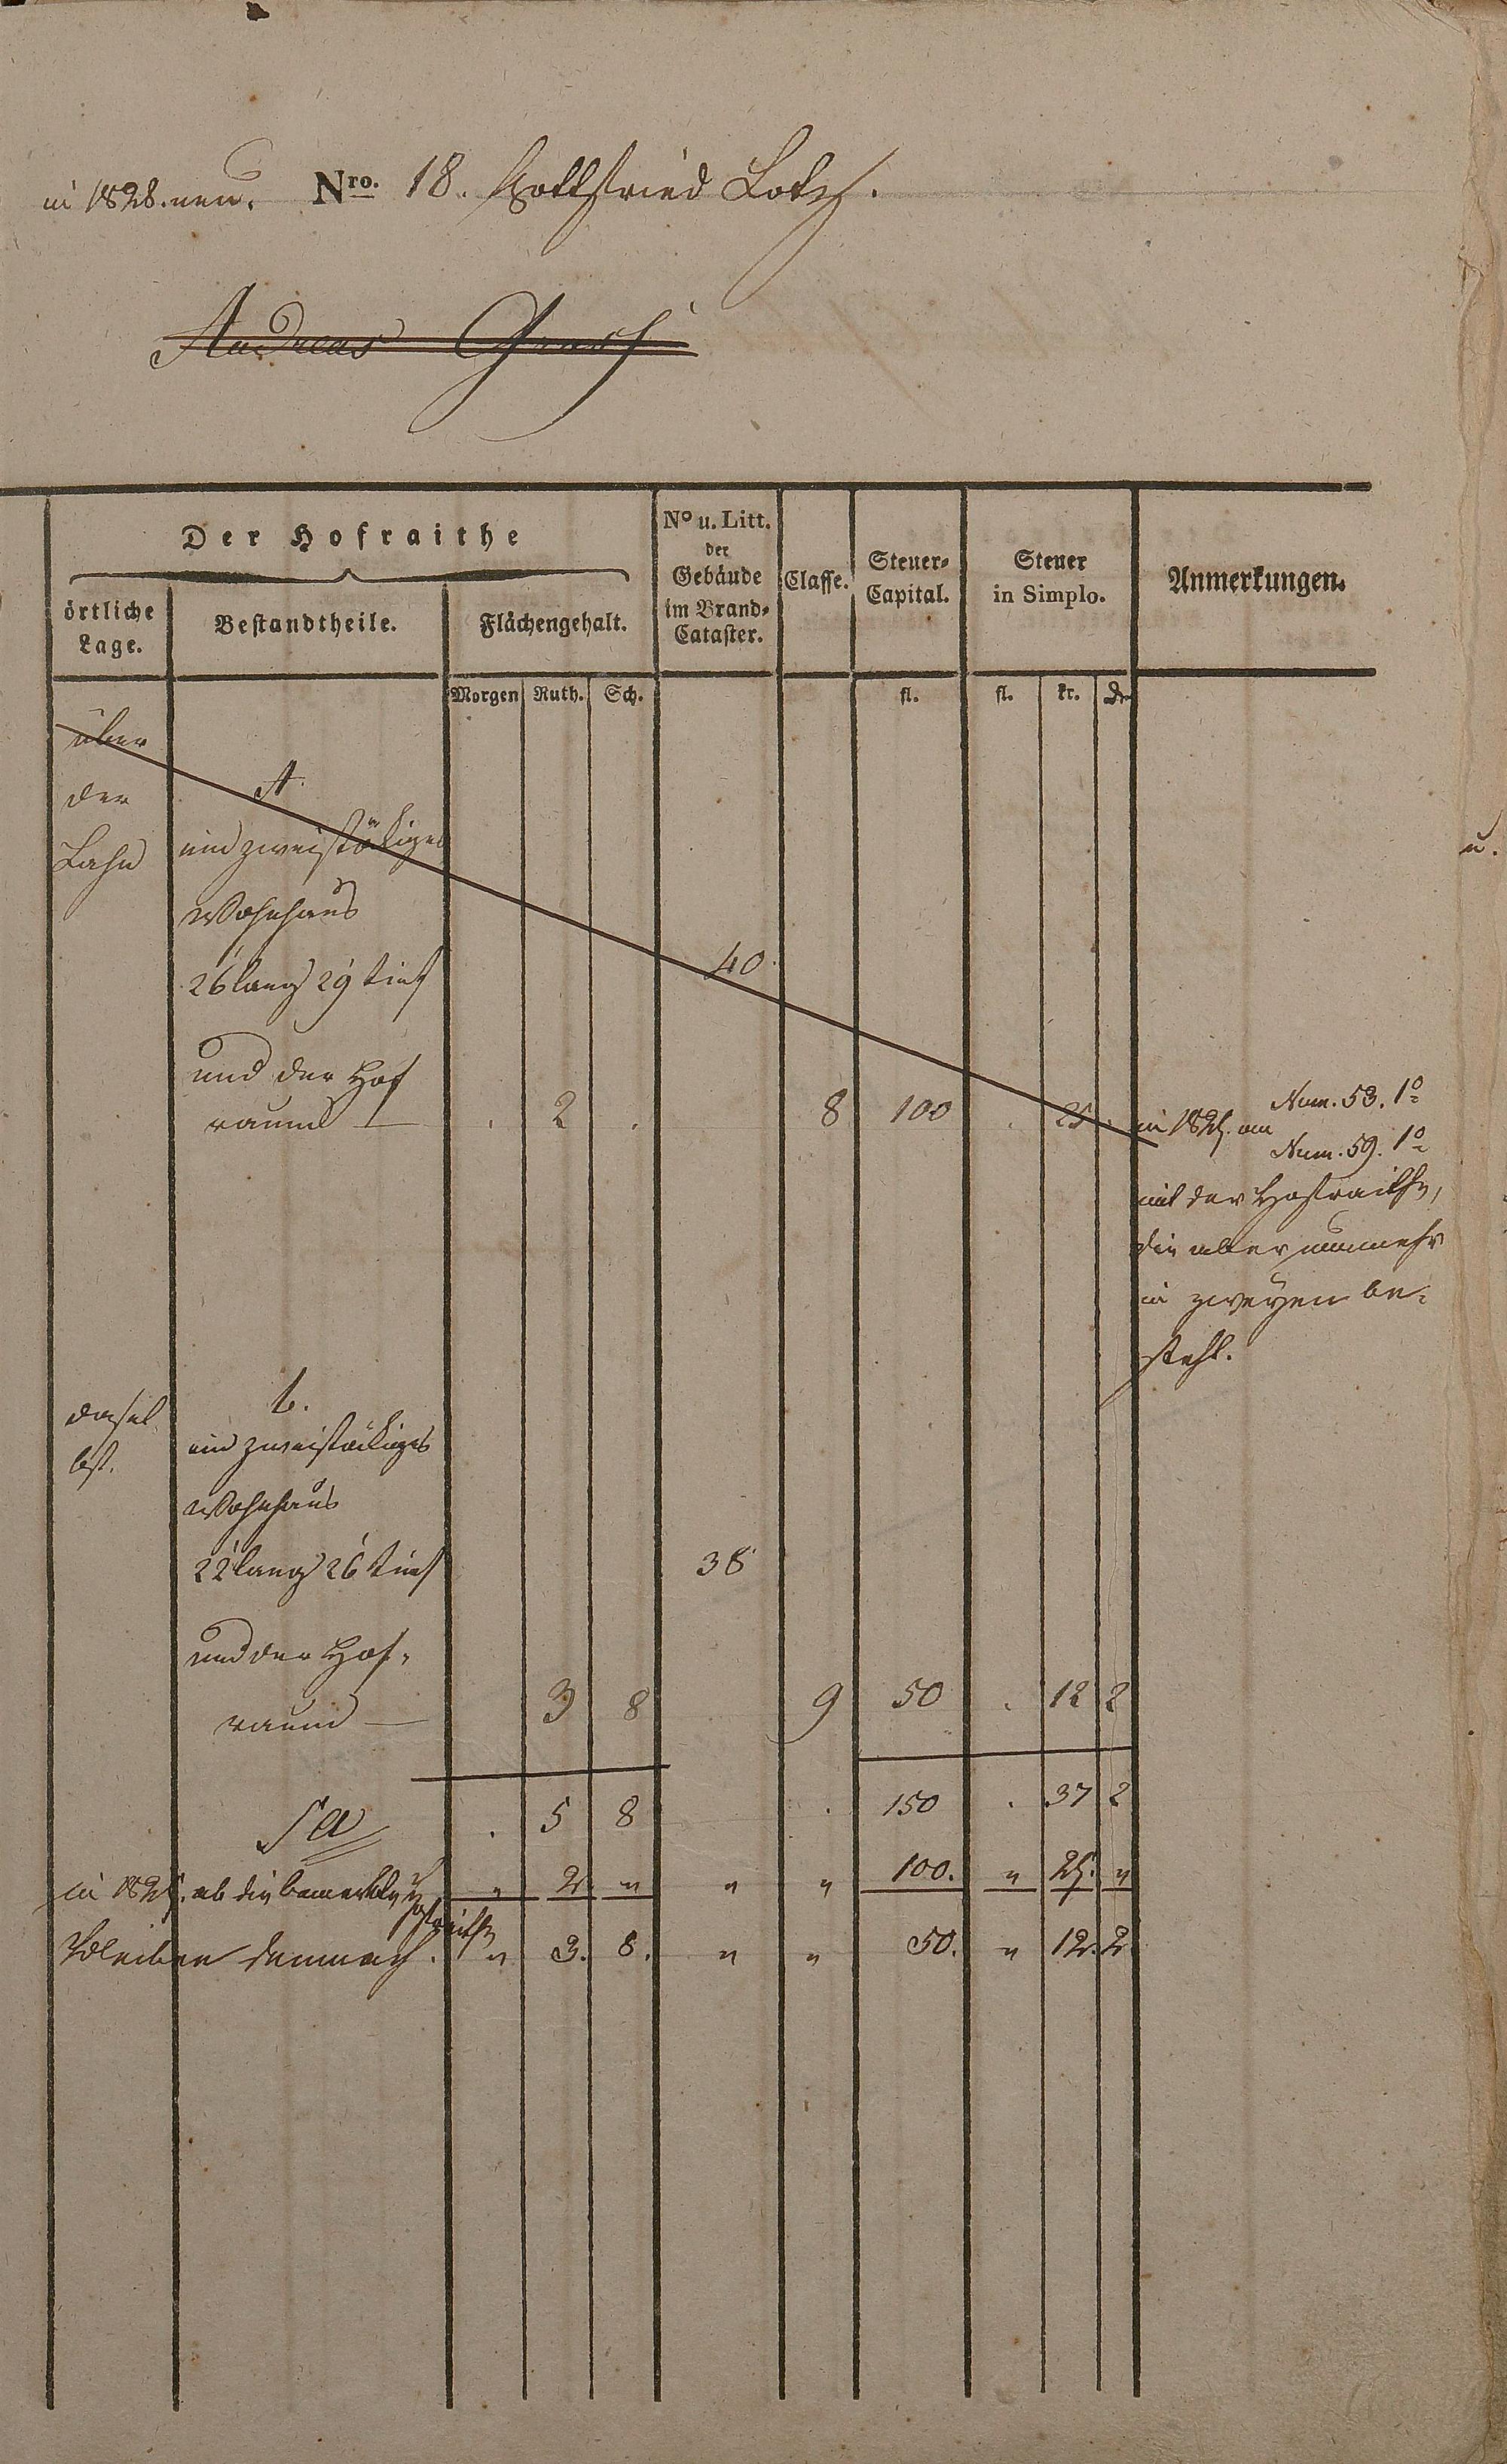 in 1828. neu. Nro. 18. Gottfried Lotz.
Andreas
Der Hofraithe
örtliche Lage.
Bestandtheile.
Flächengehalt.
No u. Litt. der Gebäude im Brand-Cataster.
Classe.
Steuer-Capital.
Steuer in Simplo.
Anmerkungen.
Morgen Ruth. Sch. fl. fl. kr. d
über
der A.
Lahn ein zweistökiges
Wohnhaus
26' lang 29' tief 40.
und der Hof
raum — . 2 . 8 100 . 25 .
in 1825. an Num. 53. 1o
Num. 59. 1o
mit der Hofraithe,
die aber nunmehr
in zweyen be-
steht.
dasel b.
bst. ein zweistökiges
Wohnhaus
22' lang 26' tief 38
und der Hof-
raum — 3 8 9 50 . 12 2
Sa . 5 8 . 150 . 37 2
in 1825. ab die bemerkte Hofraithe " 2. " " " 100. " 25. "
Bleiben demnach. " 3. 8. " " 50. " 12. 2.
u.